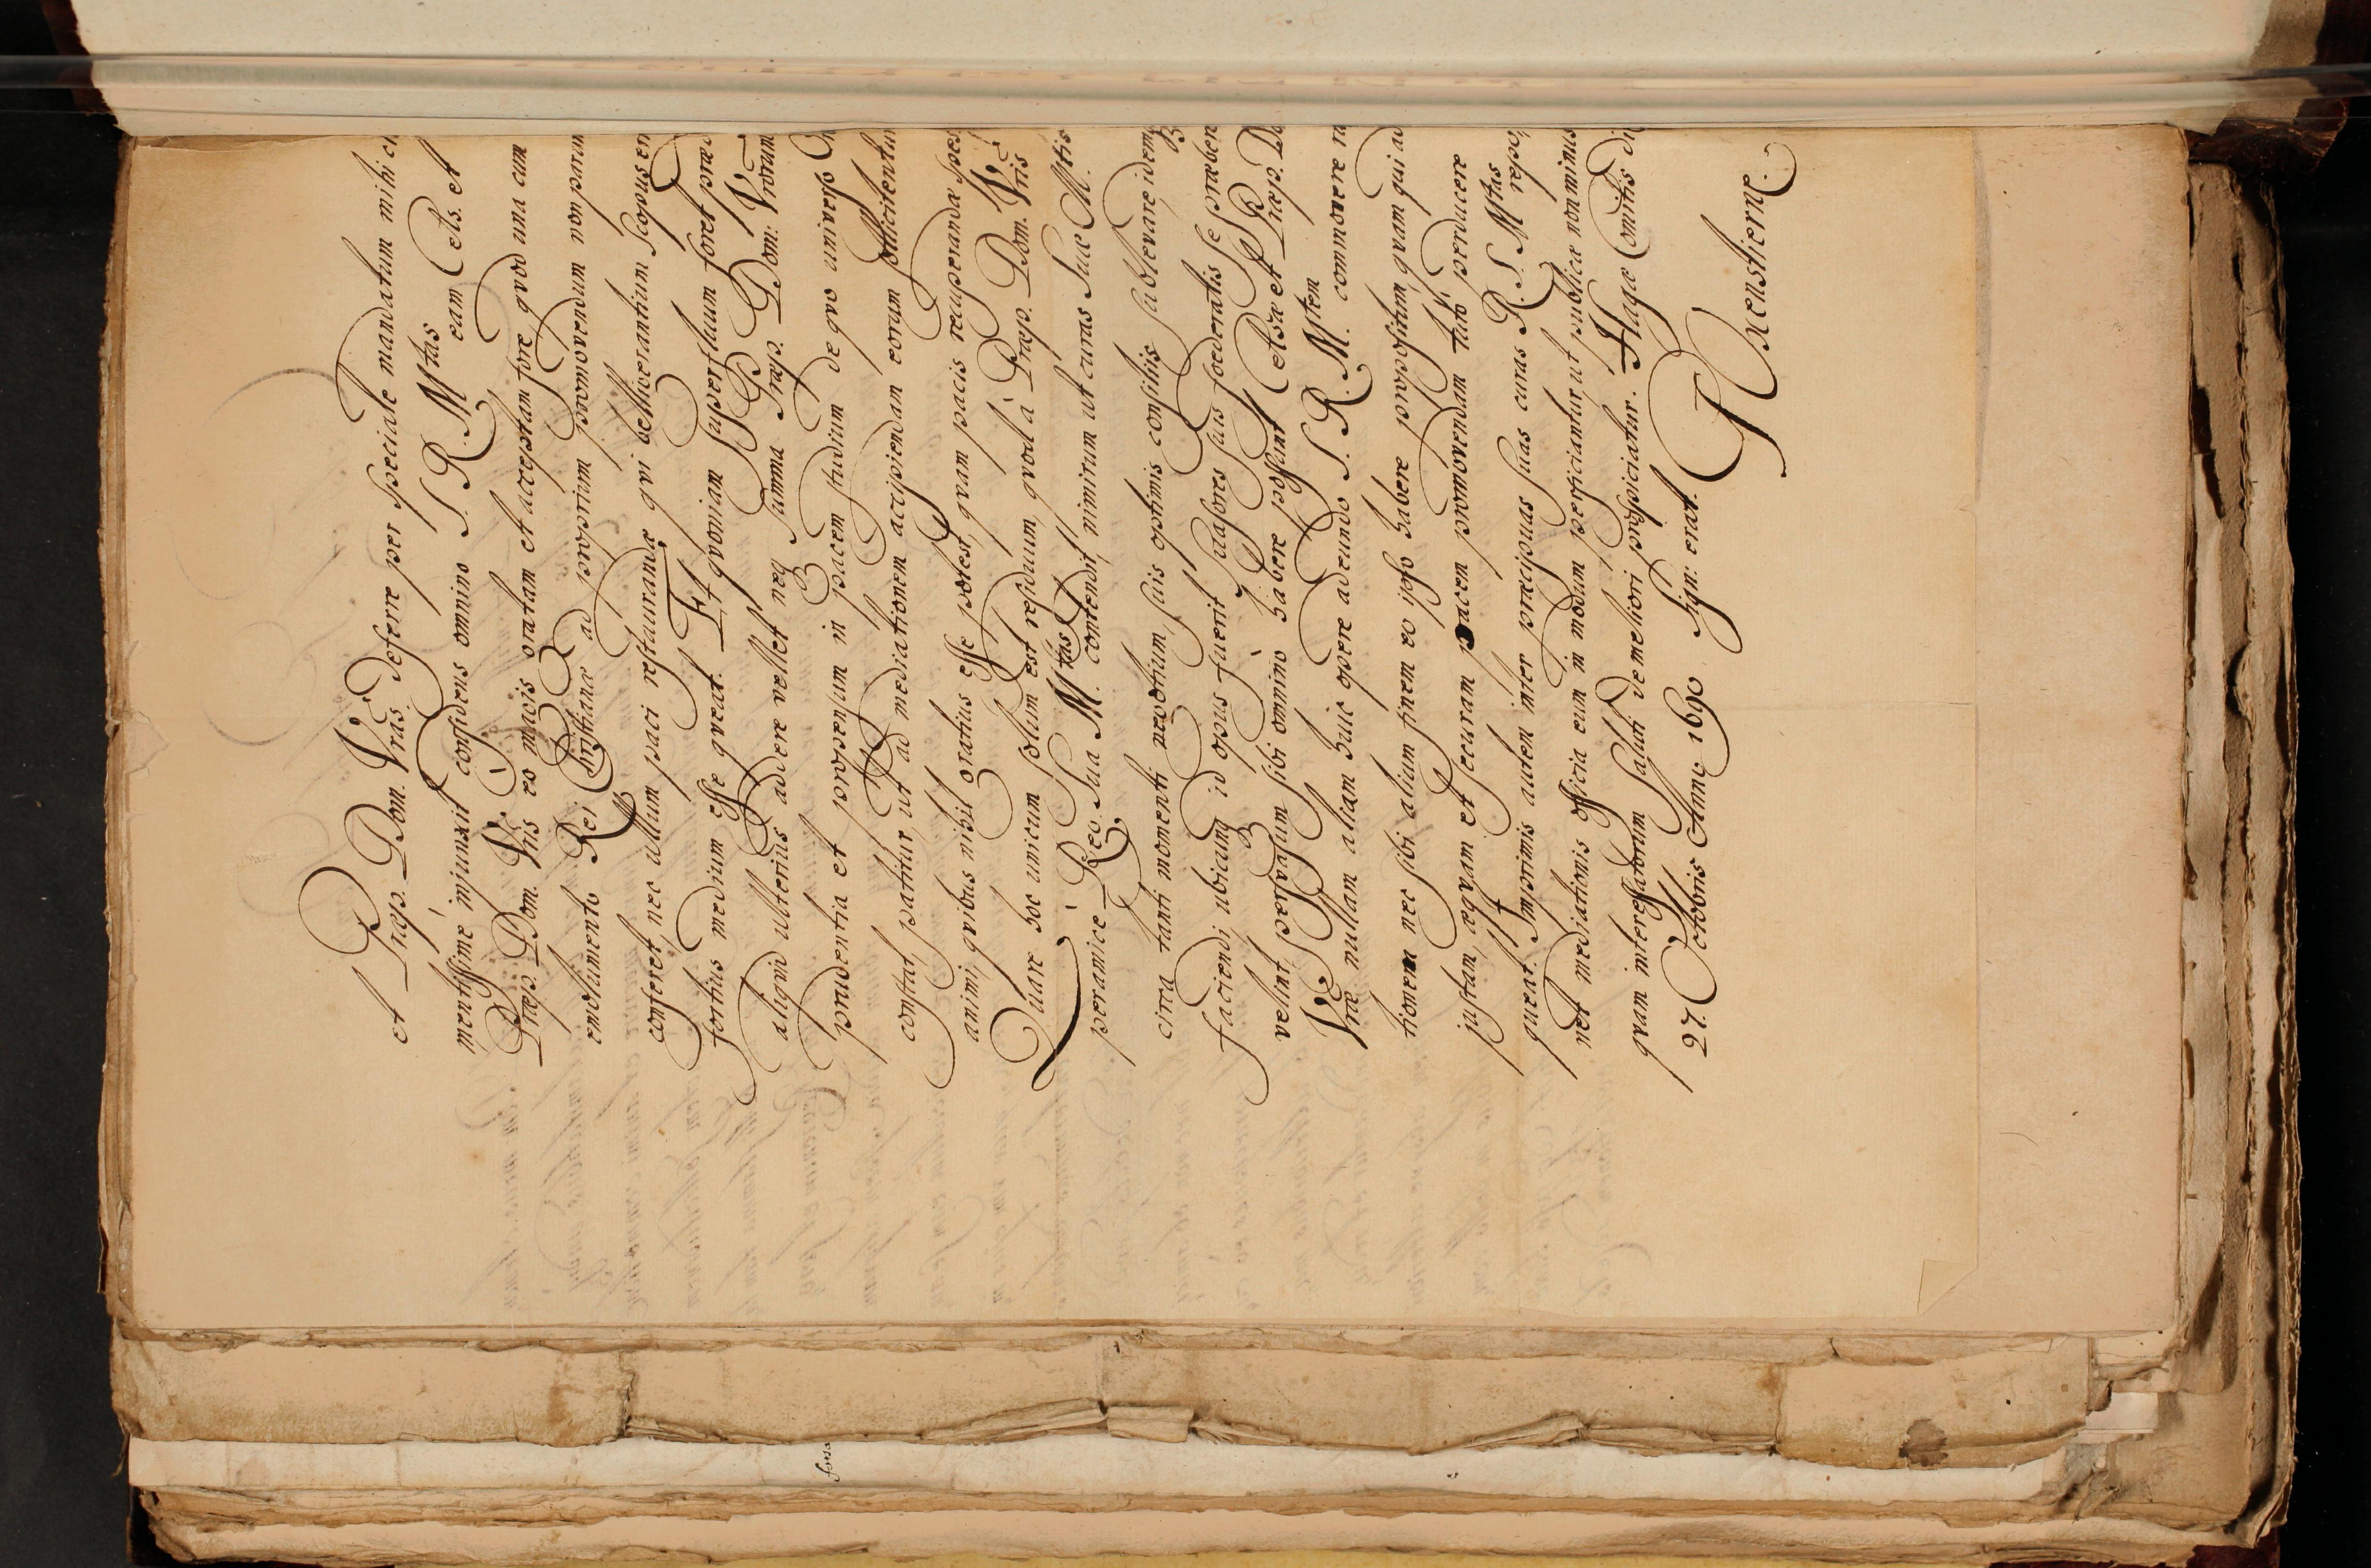 et Præp. Dom. Vras. deferre per speciale mandatum mihi cle
mentissimè injunxit confidens omnino S. R. Mtas eam Cels. et
Præp. Dom. Vris eo magis gratam et acceptam fore, qvod una cum
emolumento Rei Christianæ ad proprium promovendum non parum
conferet, nec ullum paci restaurandæ qvi belligerantium scopus er
fortius medium esse qveat. Et qvoniam superfluum foret præd
aliqvid ulterius addere vellet neq summa Præp. Dom. Vrorum
prudentia et propensum in pacem studium de qvo universo
constat, patitur, ut ad mediationem accipiendam eorum sollicitentur
animi, qvibus nihil gratius esse potest, qvam pacis recuperandæ spes
Quare hoc unicum solum est residuum, qvod à Præp. Dom. Vris
peramicè Reg. Sua M.tas contendit, nimirum ut curas Suæ M.ttis
circa tanti momenti negotium, suis optimis consiliis sublevare, idemq
faciendi, ubicunq id opus fuerit suasores suis foederatis se præbere
velint, persvasum sibi omnino habere possint Celsæ et Præp. D
Vræ nullam aliam huic operi adeundo S. R. M.tem commovere ra
tionem nec sibi alium finem eo ipso habere propositum, qvam qui ad
justam, æqvam et securam pacem promovendam tutò perducere
queat. Imprimis autem inter præcipuas suas curas R. S. Mtas repo
net mediationis officia eum in modum perficiantur ut publicæ non minus
qvam interessatorum saluti de meliori prospiciatur. Hagæ Comitis die
27. Octobris Anno 1690. Sign: erat. Oxenstierne.
fors